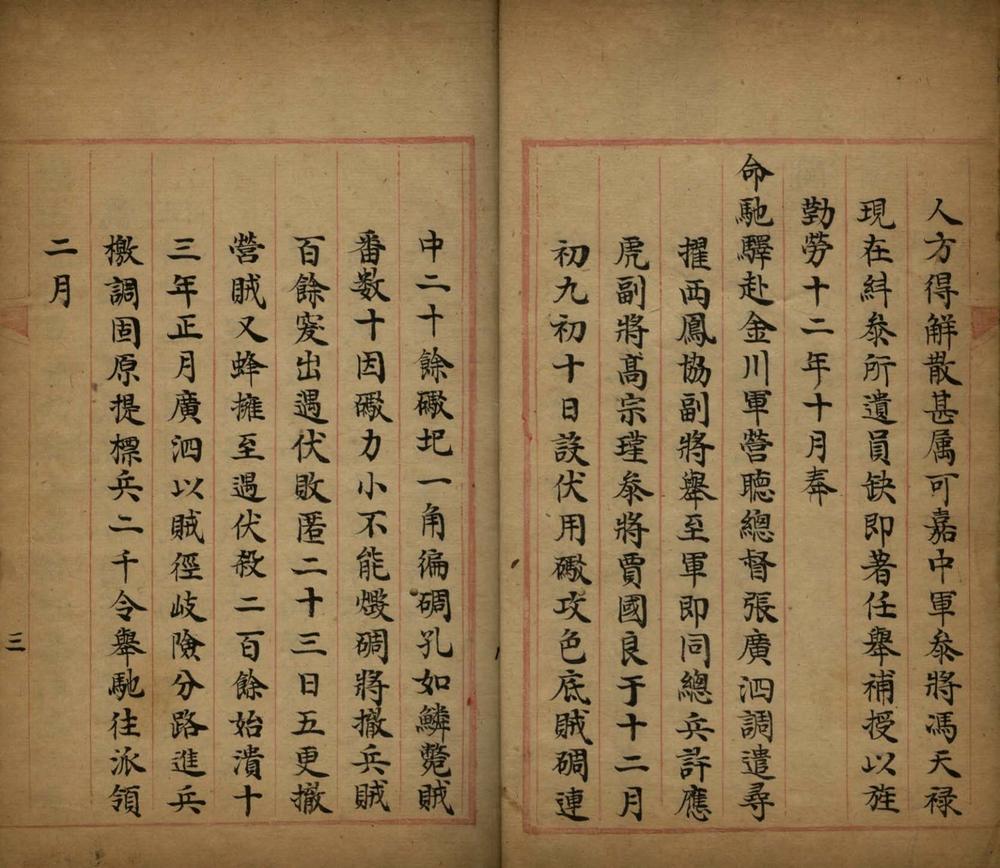 人方得解散甚属可嘉中軍叅將馮天禄
現在紏叅所遺員缺即著任舉補授以旌
勤勞十二年十月奉
命馳驛赴金川軍營聽總督張廣泗調遣尋
擢西鳳協副將舉至軍即同總兵許應
虎副將髙宗瑾叅將賈國良于十二月
初九初十日設伏用礮攻色底賊碉連
中二十餘礮圮一角徧碉孔如鱗斃賊
番数十因礮力小不能燬碉將撤兵賊
百餘突出遇伏敗匿二十三日五更撤
營賊又蜂擁至遇伏殺二百餘始潰十
三年正月廣泗以賊徑岐險分路進兵
檄調固原提標兵二千令舉馳往派領
二月
三